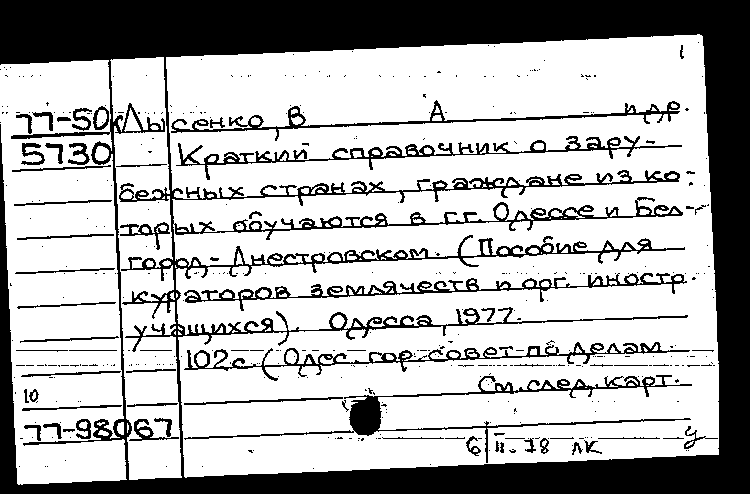 1
77-50 Лысенко, В А и др.
5730 Краткий справочник о зару-
бежных странах, граждане из ко-
торых обучаются в г.г. Одессе и Бел-
город-Днестровском. (Пособие для
кураторов землячеств и орг. иностр.
учащихся). Одесса, 1977.
102с. (Одес. гор. совет по делам
См. след. карт.
10
77-98067
6 II-78 лк у